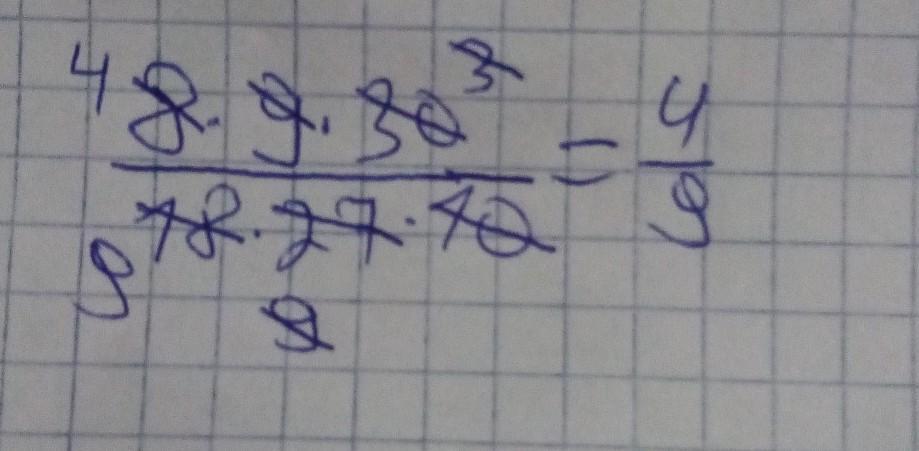 4 8 · 9 · 30 3 = 4
9 18 · 27 · 10 9
9